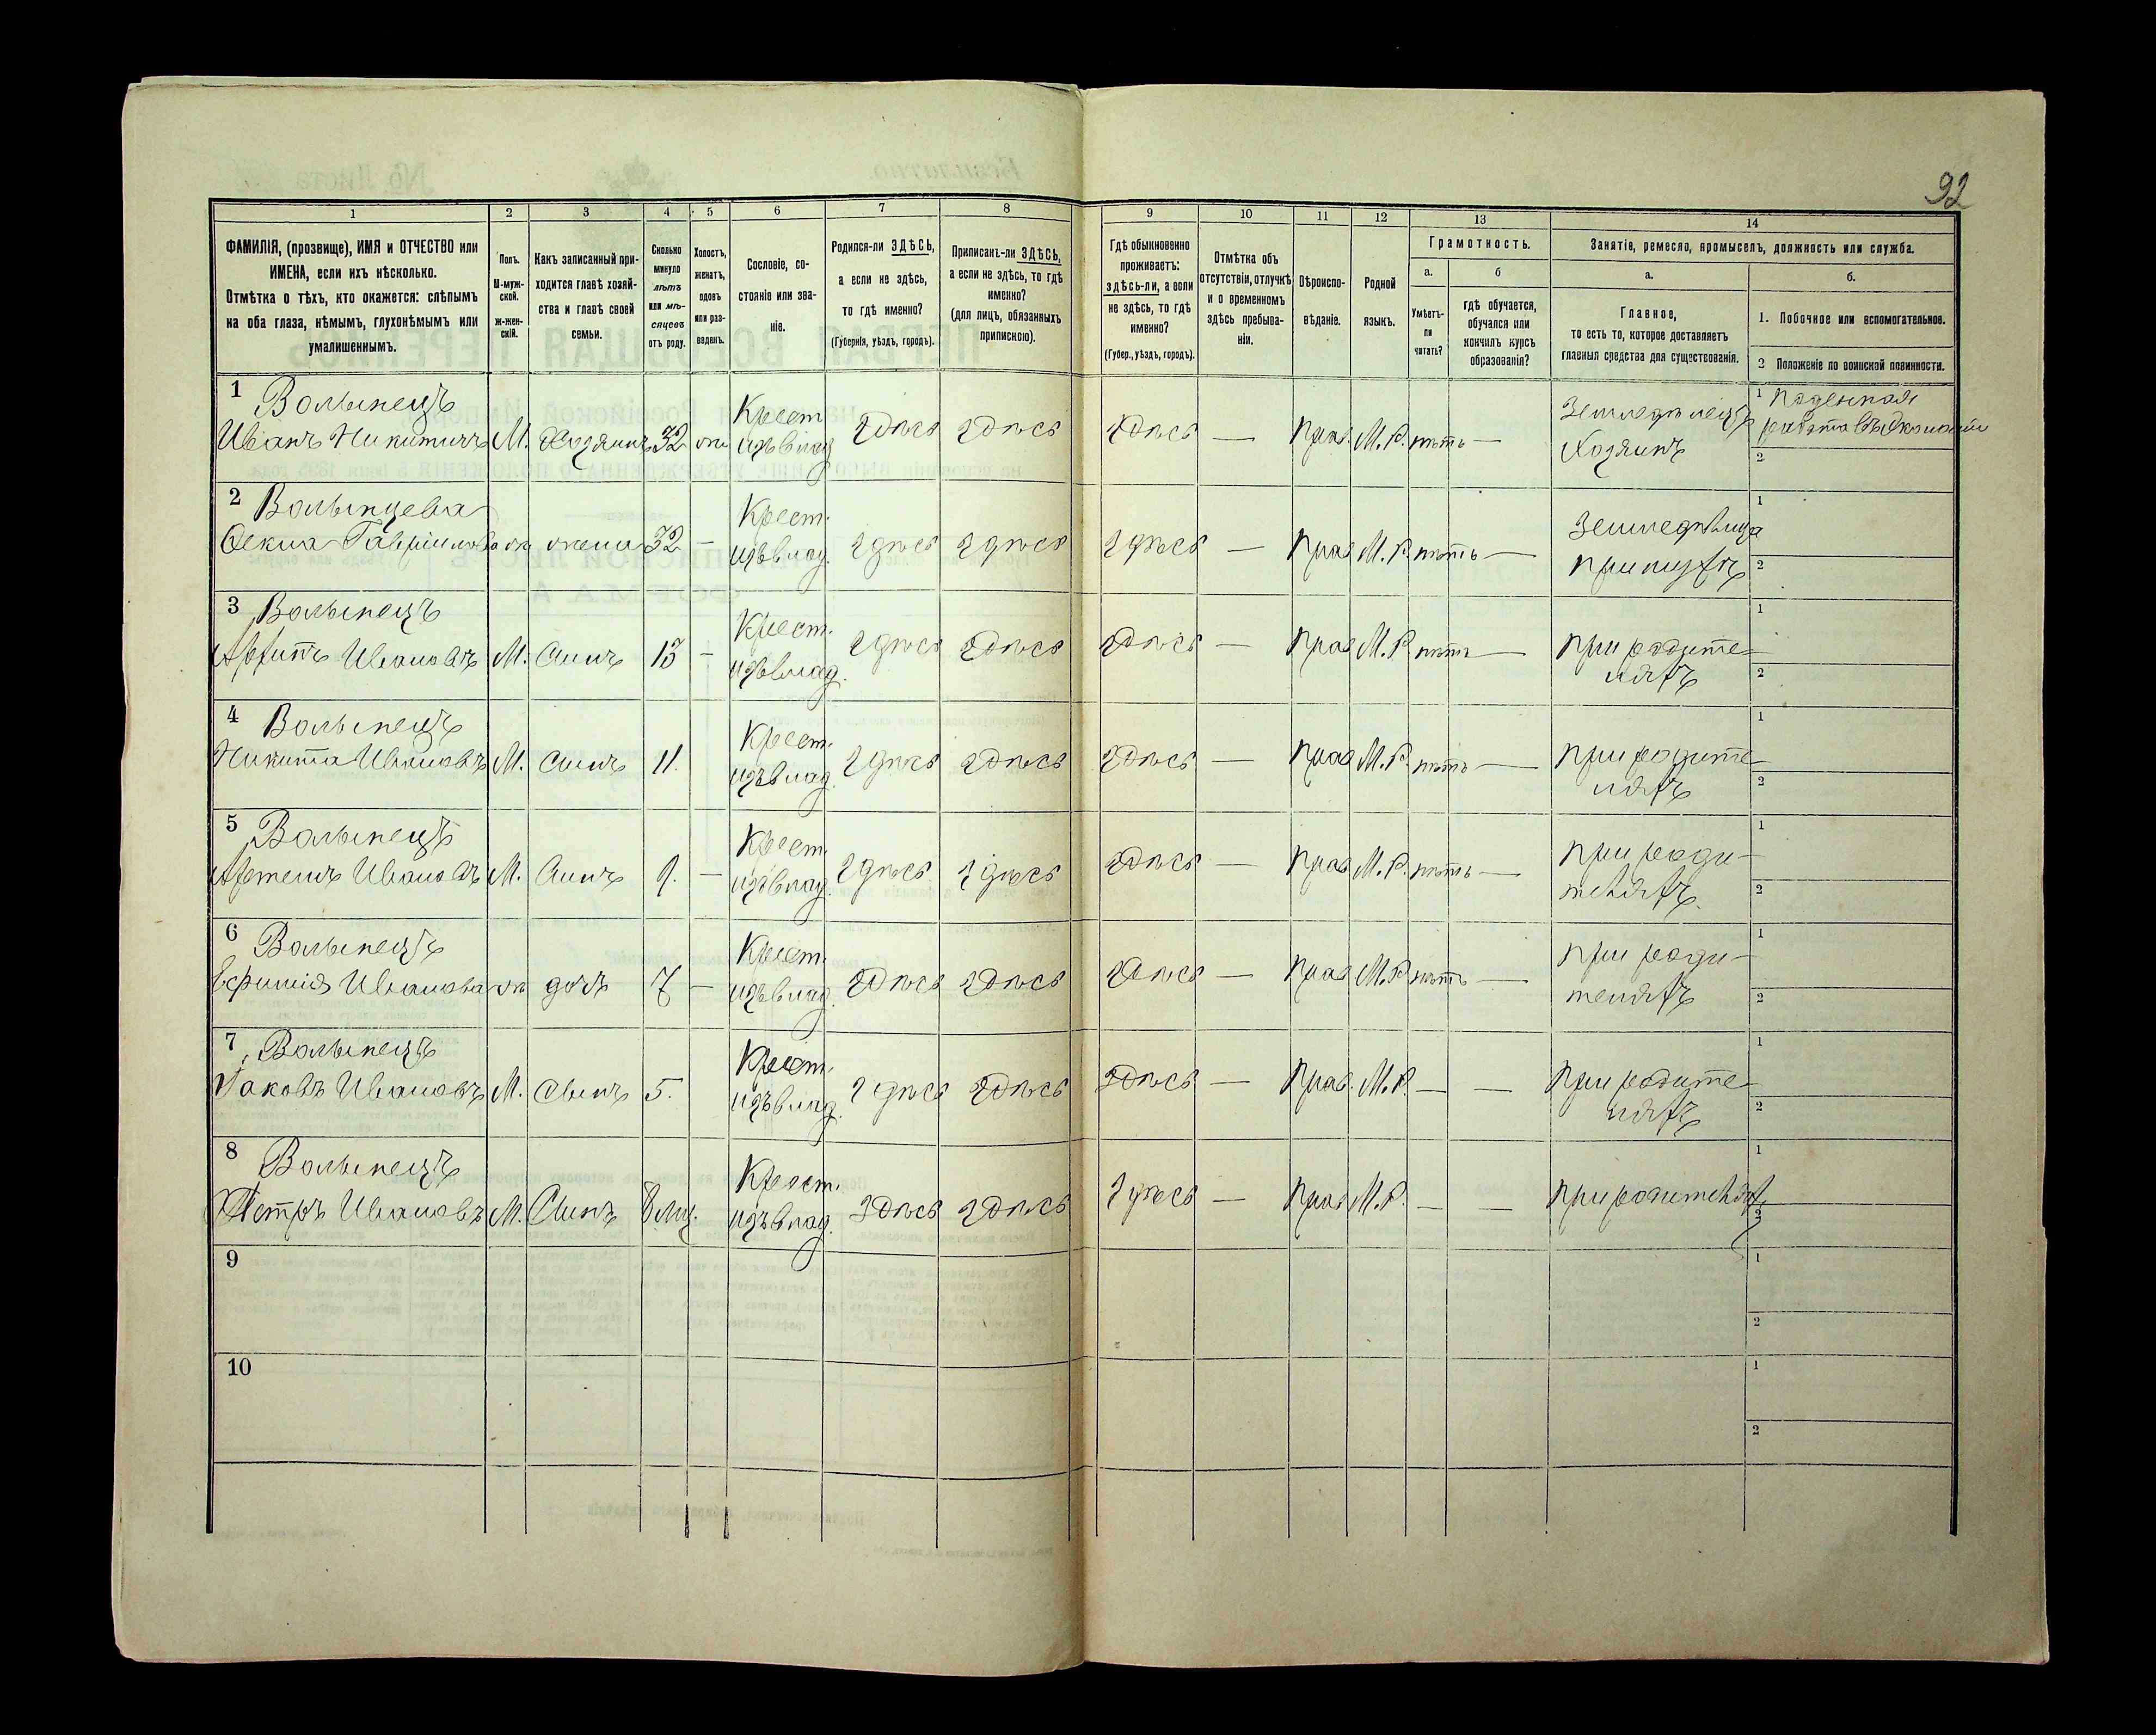 92
1 2 3 4 5 6 7 8 9 10 11 12 13 14
ФАМИЛІЯ, (прозвище), ИМЯ и ОТЧЕСТВО или
ИМЕНА, если ихъ нѣсколько.
Отмѣтка о тѣхъ, кто окажется: слѣпымъ
на оба глаза, нѣмымъ, глухонѣмымъ или
умалишеннымъ.
Полъ.
М-муж-
ской.
ж-жен-
скій.
Какъ записанный при-
ходится главѣ хозяй-
ства и главѣ своей
семьи.
Сколько
минуло
лѣтъ
или мѣ-
сяцевъ
отъ роду.
Холостъ,
женатъ,
вдовъ
или раз-
веденъ.
Сословіе, со-
стояніе или зва-
ніе.
Родился-ли ЗДѢСЬ,
а если не здѣсь,
то гдѣ именно?
(Губернія, уѣздъ, городъ).
Приписанъ-ли ЗДѢСЬ,
а если не здѣсь, то гдѣ
именно?
(для лицъ, обязанныхъ
припискою).
Гдѣ обыкновенно
проживаетъ:
здѣсь-ли, а если
не здѣсь, то гдѣ
именно?
(Губер., уѣздъ, городъ).
Отмѣтка объ
отсутствіи, отлучкѣ
и о временномъ
здѣсь пребыва-
ніи.
Вѣроиспо-
вѣданіе.
Родной
языкъ.
Грамотность.
а.
Умѣетъ-
ли
читать?
б
гдѣ обучается,
обучался или
кончилъ курсъ
образованія?
Занятіе, ремесло, промыселъ, должность или служба.
а.
Главное,
то есть то, которое доставляетъ
главныя средства для существованія.
б.
1. Побочное или вспомогательное.
2 Положеніе по воинской повинности.
1 Волынецъ Крест Земледѣлецъ 1 Поденная
Иванъ Никитичъ М. Хозяинъ 32 изъ влад здѣсь здѣсь здѣсь — Прав. М.Р. нѣтъ — Хозяинъ 2
2 Волынцева Крест. Земледѣлица 1
Гавриилова ж жена 32 — изъ влад. здѣсь здѣсь здѣсь — Прав М.Р. нѣтъ — при мужѣ 2
3 Волынецъ Крест. при родите- 1
Ивановъ М. Сынъ 13 — изъ влад. здѣсь здѣсь здѣсь — Прав М.Р. нѣтъ — ляхъ 2
4 Волынецъ Крест. при родите- 1
Никита Ивановъ М. сынъ 11. изъ влад. здѣсь здѣсь здѣсь — Прав М.Р. нѣтъ — ляхъ 2
5 Волынецъ Крест. при роди- 1
Артемъ Ивановъ М. Сынъ 9. — изъ влад. здѣсь здѣсь здѣсь — Прав М.Р. нѣтъ — теляхъ. 2
6 Волынецъ Крест. при роди- 1
Ефимія Иванова ж дочь 7 — изъ влад. здѣсь здѣсь здѣсь — Прав М.Р. нѣтъ — теляхъ 2
7 Волынецъ Крест. при родите- 1
Яковъ Ивановъ М. Сынъ 5. изъ влад. здѣсь здѣсь здѣсь — Прав. М.Р. — — ляхъ 2
8 Волынецъ Крест. 1
Петръ Ивановъ М. Сынъ 8 мц. изъ влад. здѣсь здѣсь здѣсь — Прав М.Р. — — при родителяхъ 2
9 1
2
10 1
2